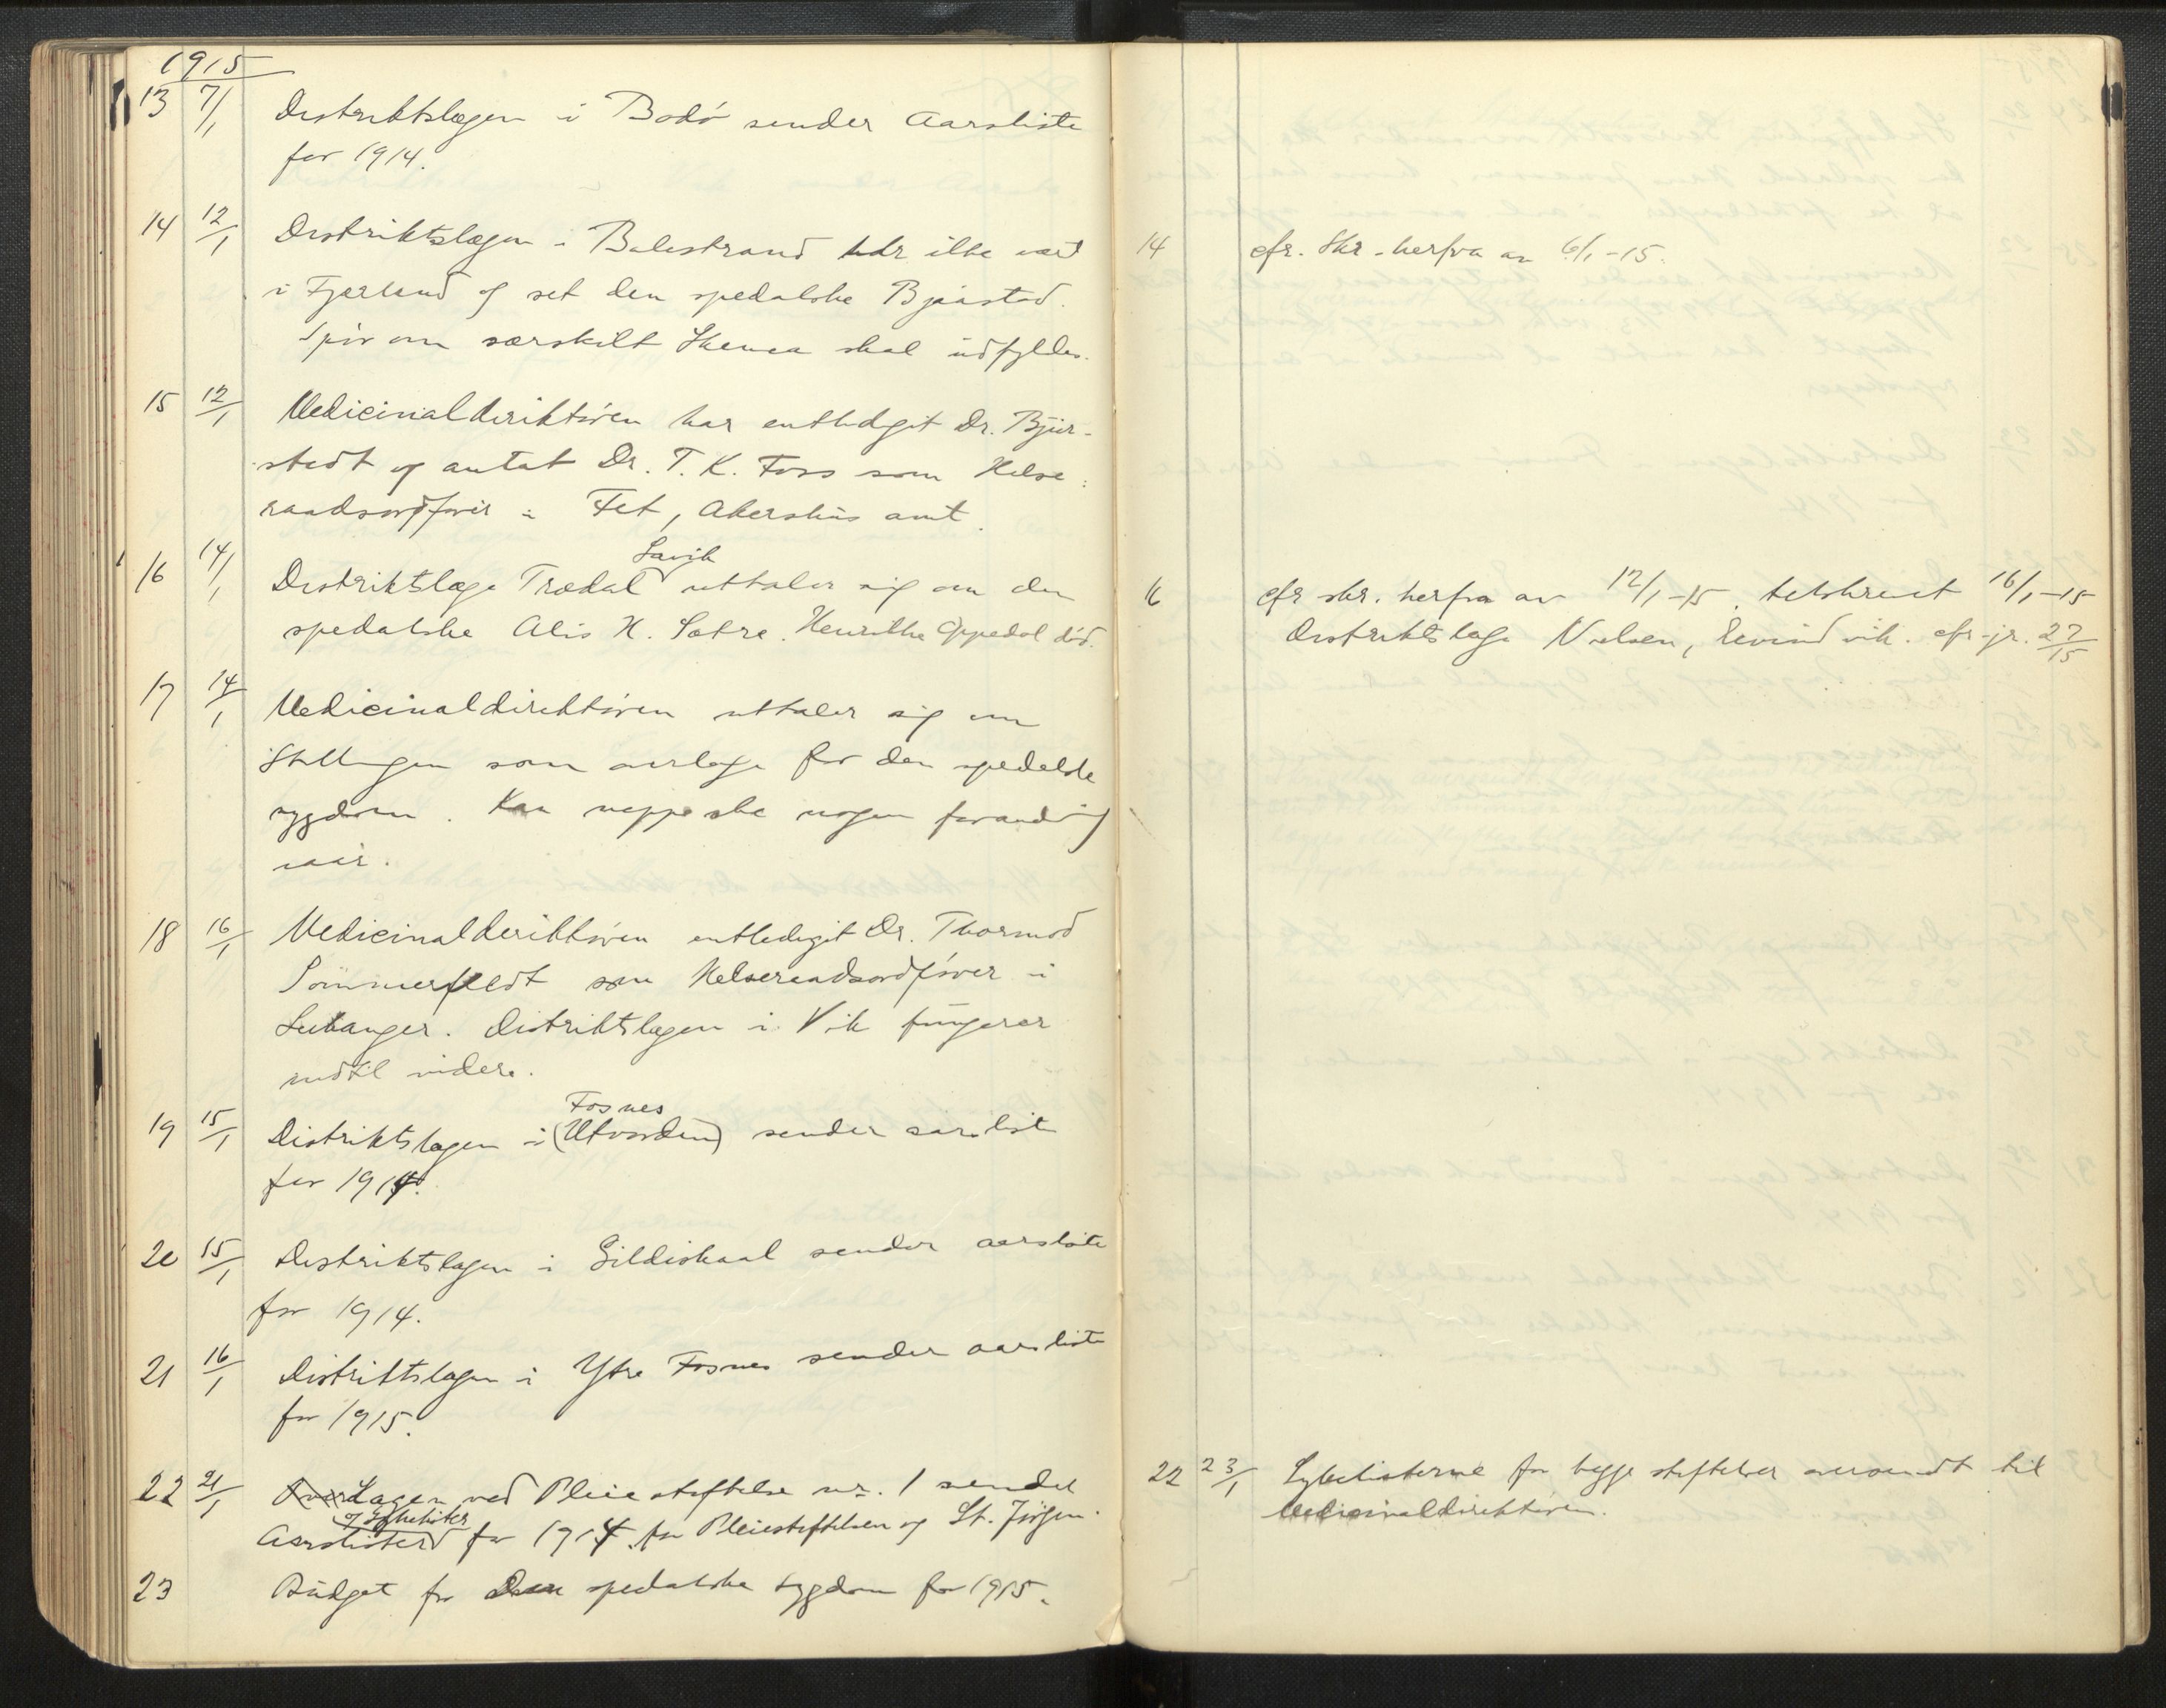 1915
13 7/1 Distriktslægen i Bodö sender Aarsliste
for 1914.
14 12/1 Distriktslægen i Balestrand har ikke vært
i Fjærland og set den spedalske Bjåstad.
Spör om særskilt Skema skal udfyldes.
15 12/1 Medicinaldirektören har entlediget Dr. Bjur-
stedt og antat Dr. T. K. Foss som Helse-
raadsordförer i Fet, Akershus amt.
Lavik
16 14/1 Distriktslæge Trædal uttaler sig om den
spedalske Alis H. Sætre. Henrikke Oppedal död.
17 14/1 Medicinaldirektören uttaler sig om
Stillingen som overlæge for den spedalske
sygdom. Kan neppe ske nogen forandring
iaar.
18 16/1 Medicinaldirektören entlediget Dr. Thormod
Sömmerfeldt som Helseraadsordförer i
Leikanger. Distriktslægen i Vik fungerer
indtil videre.
Fosnes
19 15/1 Distriktslægen i (Utvorden) sender aarsliste
for 1914.
20 15/1 Distriktslægen i Gildeskaal sender aarsliste
for 1914.
21 16/1 Distriktslægen i Ytre Fosnes sender aarsliste
for 1915.
22 21/1 Over Lægen ved Pleiestiftelse nr. 1 sendt
og Sykelister
Aarslister for 1914 for Pleiestiftelsen og St. Jörgen.
23 Budget for Den spedalske Sygdom for 1915.
14 cfr. Skr. herfra av 6/1-15.
16 cfr skr. herfra av 12/1-15. tilskrevet 16/1-15
Distriktslæge Nielsen, Eivindvik. cfr jr. 27/15
22 23/1 Sykelisterne for begge stiftelser oversendt til
Medicinaldirektören.